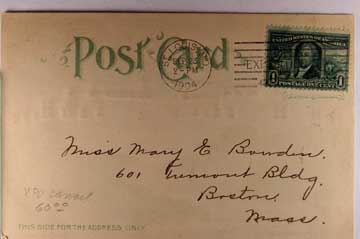 Post Card
ST. LOUIS
PM
1904
UNITED STATES OF AMERICA
1 1
POSTAGE ONE CENT
Miss Mary E Bowdin.
601 Tremont Bldg.
Boston.
Mass.
60.00
THIS SIDE FOR THE ADDRESS ONLY.